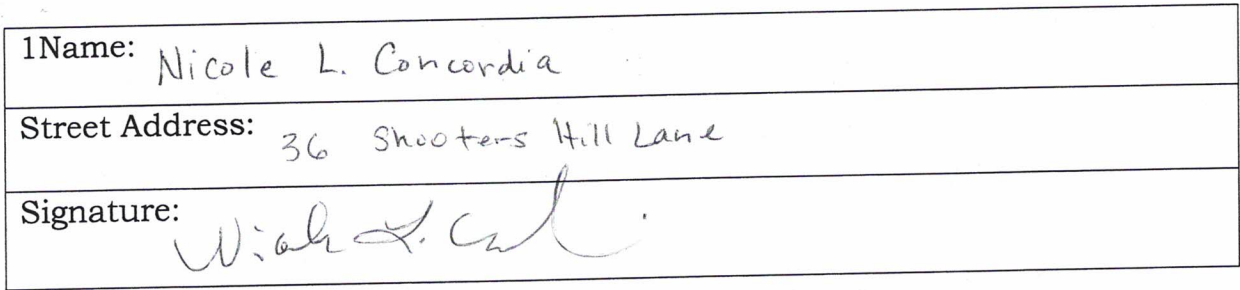 1Name: Nicole L. Concordia
Street Address: 36 Shooters Hill Lane
Signature: Nicole L.